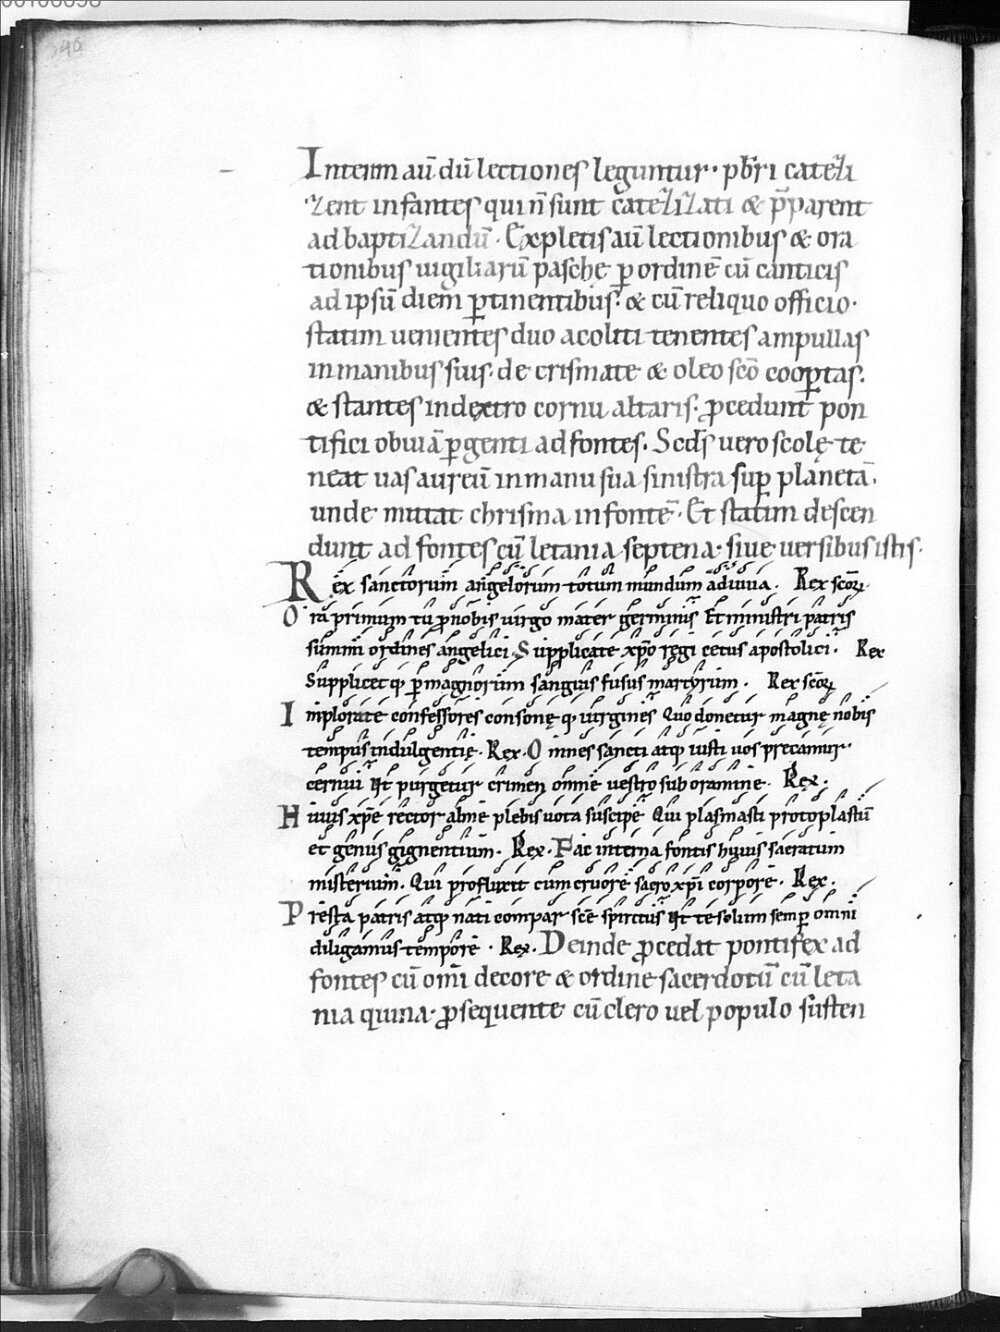 340
Interim aū dū lectiones leguntur· pb̄ri cateȥi
ȥent infantes qui n̄ sunt cateȥiȥati & p̄parent
ad baptiȥandū· Expletis aū lectionibus & ora
tionibus uigiliarū paschę p̱ ordinē cū canticis
ad ipsū diem p̱tinentibus· & cū reliquo officio·
statim uenientes duo acoliti tenentes ampullas
in manibus suis· de crismate & oleo sc̄o coop̱tas·
& stantes in dextro cornu altaris· ꝓcedunt pon
tifici obuiā p̱genti ad fontes· Scds̄ uero scolę te
neat uas aureū in manu sua sinistra sup̱ planetā·
unde mittat chrisma in fontē· Et statim descen
dunt ad fontes cū letania septena· siue uersibus istis·
Rex sanctorum angelorum totum mundum adiuua· Rex sc̄oꝝ·
Ora primum tu ꝓ nobis uirgo mater germinis Et ministri patris
summi ordines angelici· Supplicate xp̄o regi cetus apostolici· Rex
Supplicetq; p̱magnorum sanguis fusus martyrum· Rex sc̄oꝝ
Implorate confessores consonęq; uirgines Quo donetur magnę nobis
tempus indulgentię· Rex· Omnes sancti atq; iusti uos precamur
cernui Ut purgetur crimen omne uestro sub oramine· Rex·
Huius xp̄e rector alme plebis uota suscipe Qui plasmasti protoplastū
et genus gignentium· Rex· Fac interna fontis huius sacratum
misterium· Qui profluxit cum cruore sacro xp̄i corpore· Rex·
Presta patris atq; nati compar sc̄e spiritus Ut te solum semp̱ omni
diligamus tempore· Rex· Deinde ꝓcedat pontifex ad
fontes cū om̄i decore & ordine sacerdotū cū leta
nia quina· ꝓsequente cū clero uel populo susten